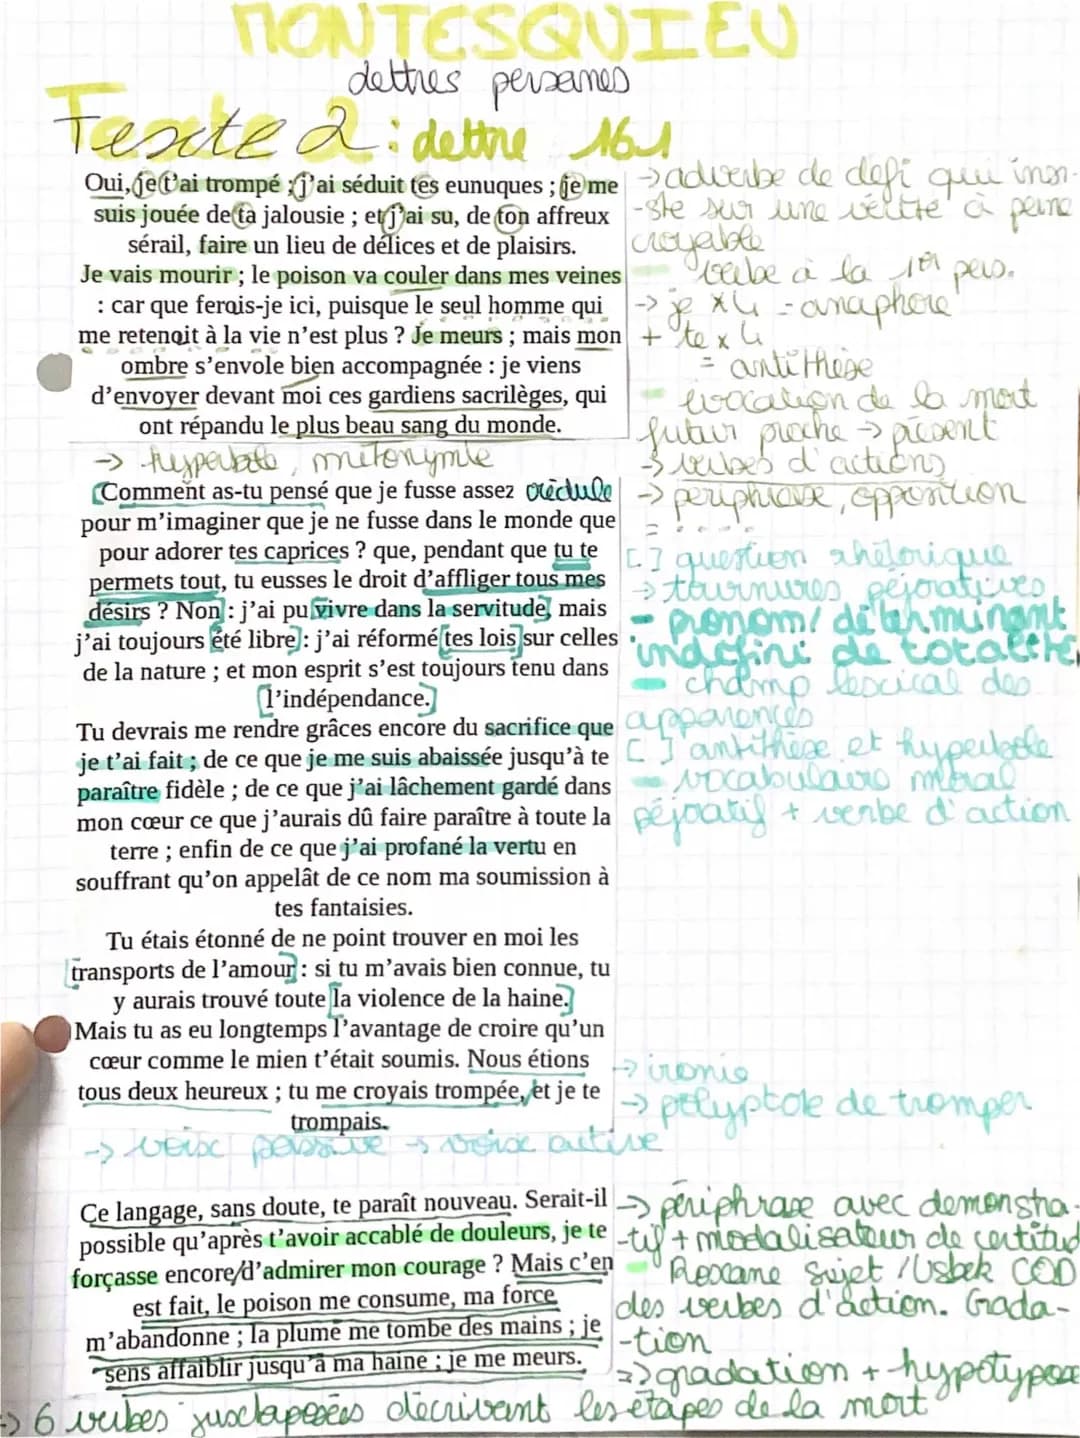 MONTESQUIEU
Lettres persanes
Texte 2 : lettre 161
Oui, je t'ai trompé ; j'ai séduit tes eunuques ; je me
suis jouée de ta jalousie ; et j'ai su, de ton affreux
sérail, faire un lieu de délices et de plaisirs.
Je vais mourir ; le poison va couler dans mes veines
: car que ferais-je ici, puisque le seul homme qui
me retenait à la vie n'est plus ? Je meurs ; mais mon
ombre s'envole bien accompagnée : je viens
d'envoyer devant moi ces gardiens sacrilèges, qui
ont répandu le plus beau sang du monde.
→ adverbe de défi qui insi-
-ste sur une vérité à peine
croyable
verbe à la 1ère pers.
→ je x4 = anaphore
+ te x4
= antithèse
évocation de la mort
futur proche → présent
→ verbes d'actions
→ périphrase, opposition
→ hyperbole, métonymie
Comment as-tu pensé que je fusse assez crédule
pour m'imaginer que je ne fusse dans le monde que
pour adorer tes caprices ? que, pendant que tu te
permets tout, tu eusses le droit d'affliger tous mes
désirs ? Non : j'ai pu vivre dans la servitude, mais
j'ai toujours été libre : j'ai réformé tes lois sur celles
de la nature ; et mon esprit s'est toujours tenu dans
l'indépendance.
Tu devrais me rendre grâces encore du sacrifice que
je t'ai fait ; de ce que je me suis abaissée jusqu'à te
paraître fidèle ; de ce que j'ai lâchement gardé dans
mon cœur ce que j'aurais dû faire paraître à toute la
terre ; enfin de ce que j'ai profané la vertu en
souffrant qu'on appelât de ce nom ma soumission à
tes fantaisies.
[ ] question rhétorique
→ tournures péjoratives
- pronom/ déterminant
indéfini de totalité
- champ lexical des
apparences
[ ] antithèse et hyperbole
- vocabulaire moral
péjoratif + verbe d'action
Tu étais étonné de ne point trouver en moi les
[transports de l'amour] : si tu m'avais bien connue, tu
y aurais trouvé toute [la violence de la haine.]
Mais tu as eu longtemps l'avantage de croire qu'un
cœur comme le mien t'était soumis. Nous étions
tous deux heureux ; tu me croyais trompée, et je te
trompais.
→ ironie
→ polyptote de tromper
→ voix passive → voix active
Ce langage, sans doute, te paraît nouveau. Serait-il
possible qu'après t'avoir accablé de douleurs, je te
forçasse encore d'admirer mon courage ? Mais c'en
est fait, le poison me consume, ma force
m'abandonne ; la plume me tombe des mains ; je
sens affaiblir jusqu'à ma haine ; je me meurs.
→ périphrase avec démonstra-
-tif + modalisateur de certitud
Roxane sujet / Usbek COD
des verbes d'action. Grada-
-tion
=> gradation + hypotypose
=> 6 verbes juxtaposées décrivant les étapes de la mort